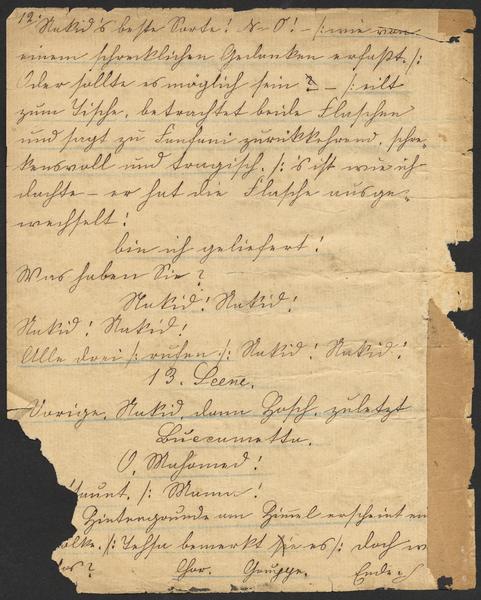 12. Nakid's beste Sorte! N-O! - /: wie von
einem schrecklichen Gedanken erfaßt. /:
Oder sollte es möglich sein? - /: eilt
zum Tische, betrachtet beide Flaschen
und sagt zu Fanfani zurückkehrend, schre-
kensvoll und tragisch. /: 's ist wie ich
dachte - er hat die Flasche ausge-
wechselt!
bin ich geliefert!
Was haben Sie?
Nakid! Nakid!
Nakid! Nakid!
Alle drei /: rufen :/: Nakid! Nakid!
13. Scene.
Vorige, Nakid, dann Hosch, zuletzt
Buccametta.
O, Mahomed!
staunt. /: Mama!
Hintergrunde am Himmel erscheint
olke. /: bemerkt es /: doch
das? Chor. Gruppe. Ende